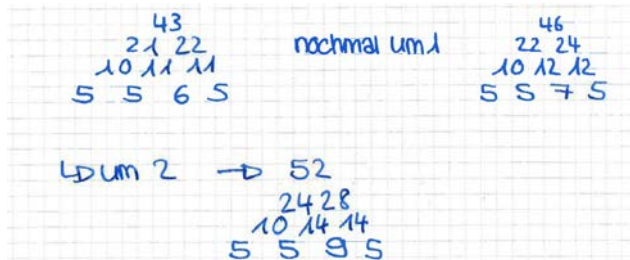 43
21 22
10 11 11
5 5 6 5
nochmal um 1
46
22 24
10 12 12
5 5 7 5
↳ um 2 → 52
24 28
10 14 14
5 5 9 5